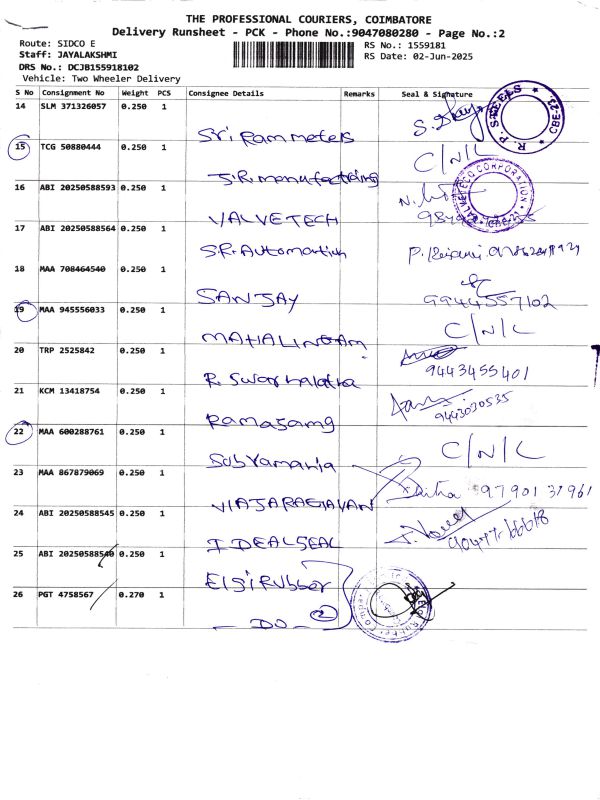 THE PROFESSIONAL COURIERS, COIMBATORE
Delivery Runsheet - PCK - Phone No.:9047080280 - Page No.:2
Route: SIDCO E
Staff: JAYALAKSHMI
DRS No.: DCJB155918102
Vehicle: Two Wheeler Delivery
RS No.: 1559181
RS Date: 02-Jun-2025
S No Consignment No Weight PCS Consignee Details Remarks Seal & Signature
14 SLM 371326057 0.250 1 Sri Ram meters
R. P. STEELS CBE-22.
15 TCG 50880444 0.250 1 J.R. manufactring C/N/C
16 ABI 20250588593 0.250 1 VALVETECH
VALVETECQ CORPORATION CBE-21
17 ABI 20250588564 0.250 1 S.R. Automation
18 MAA 708464540 0.250 1 SANJAY 9944557102
19 MAA 945556033 0.250 1 MAHALINGAM C/N/C
20 TRP 2525842 0.250 1 R. Swarnalatha 9443455401
21 KCM 13418754 0.250 1 Ramasamy 9443030535
22 MAA 600288761 0.250 1 Subramania C/N/C
23 MAA 867879069 0.250 1 VIAJARAGAVAN 97901 37961
24 ABI 20250588545 0.250 1 IDEAL SEAL
25 ABI 20250588540 0.250 1 Elgi Rubber
26 PGT 4758567 0.270 1 - DO - 2